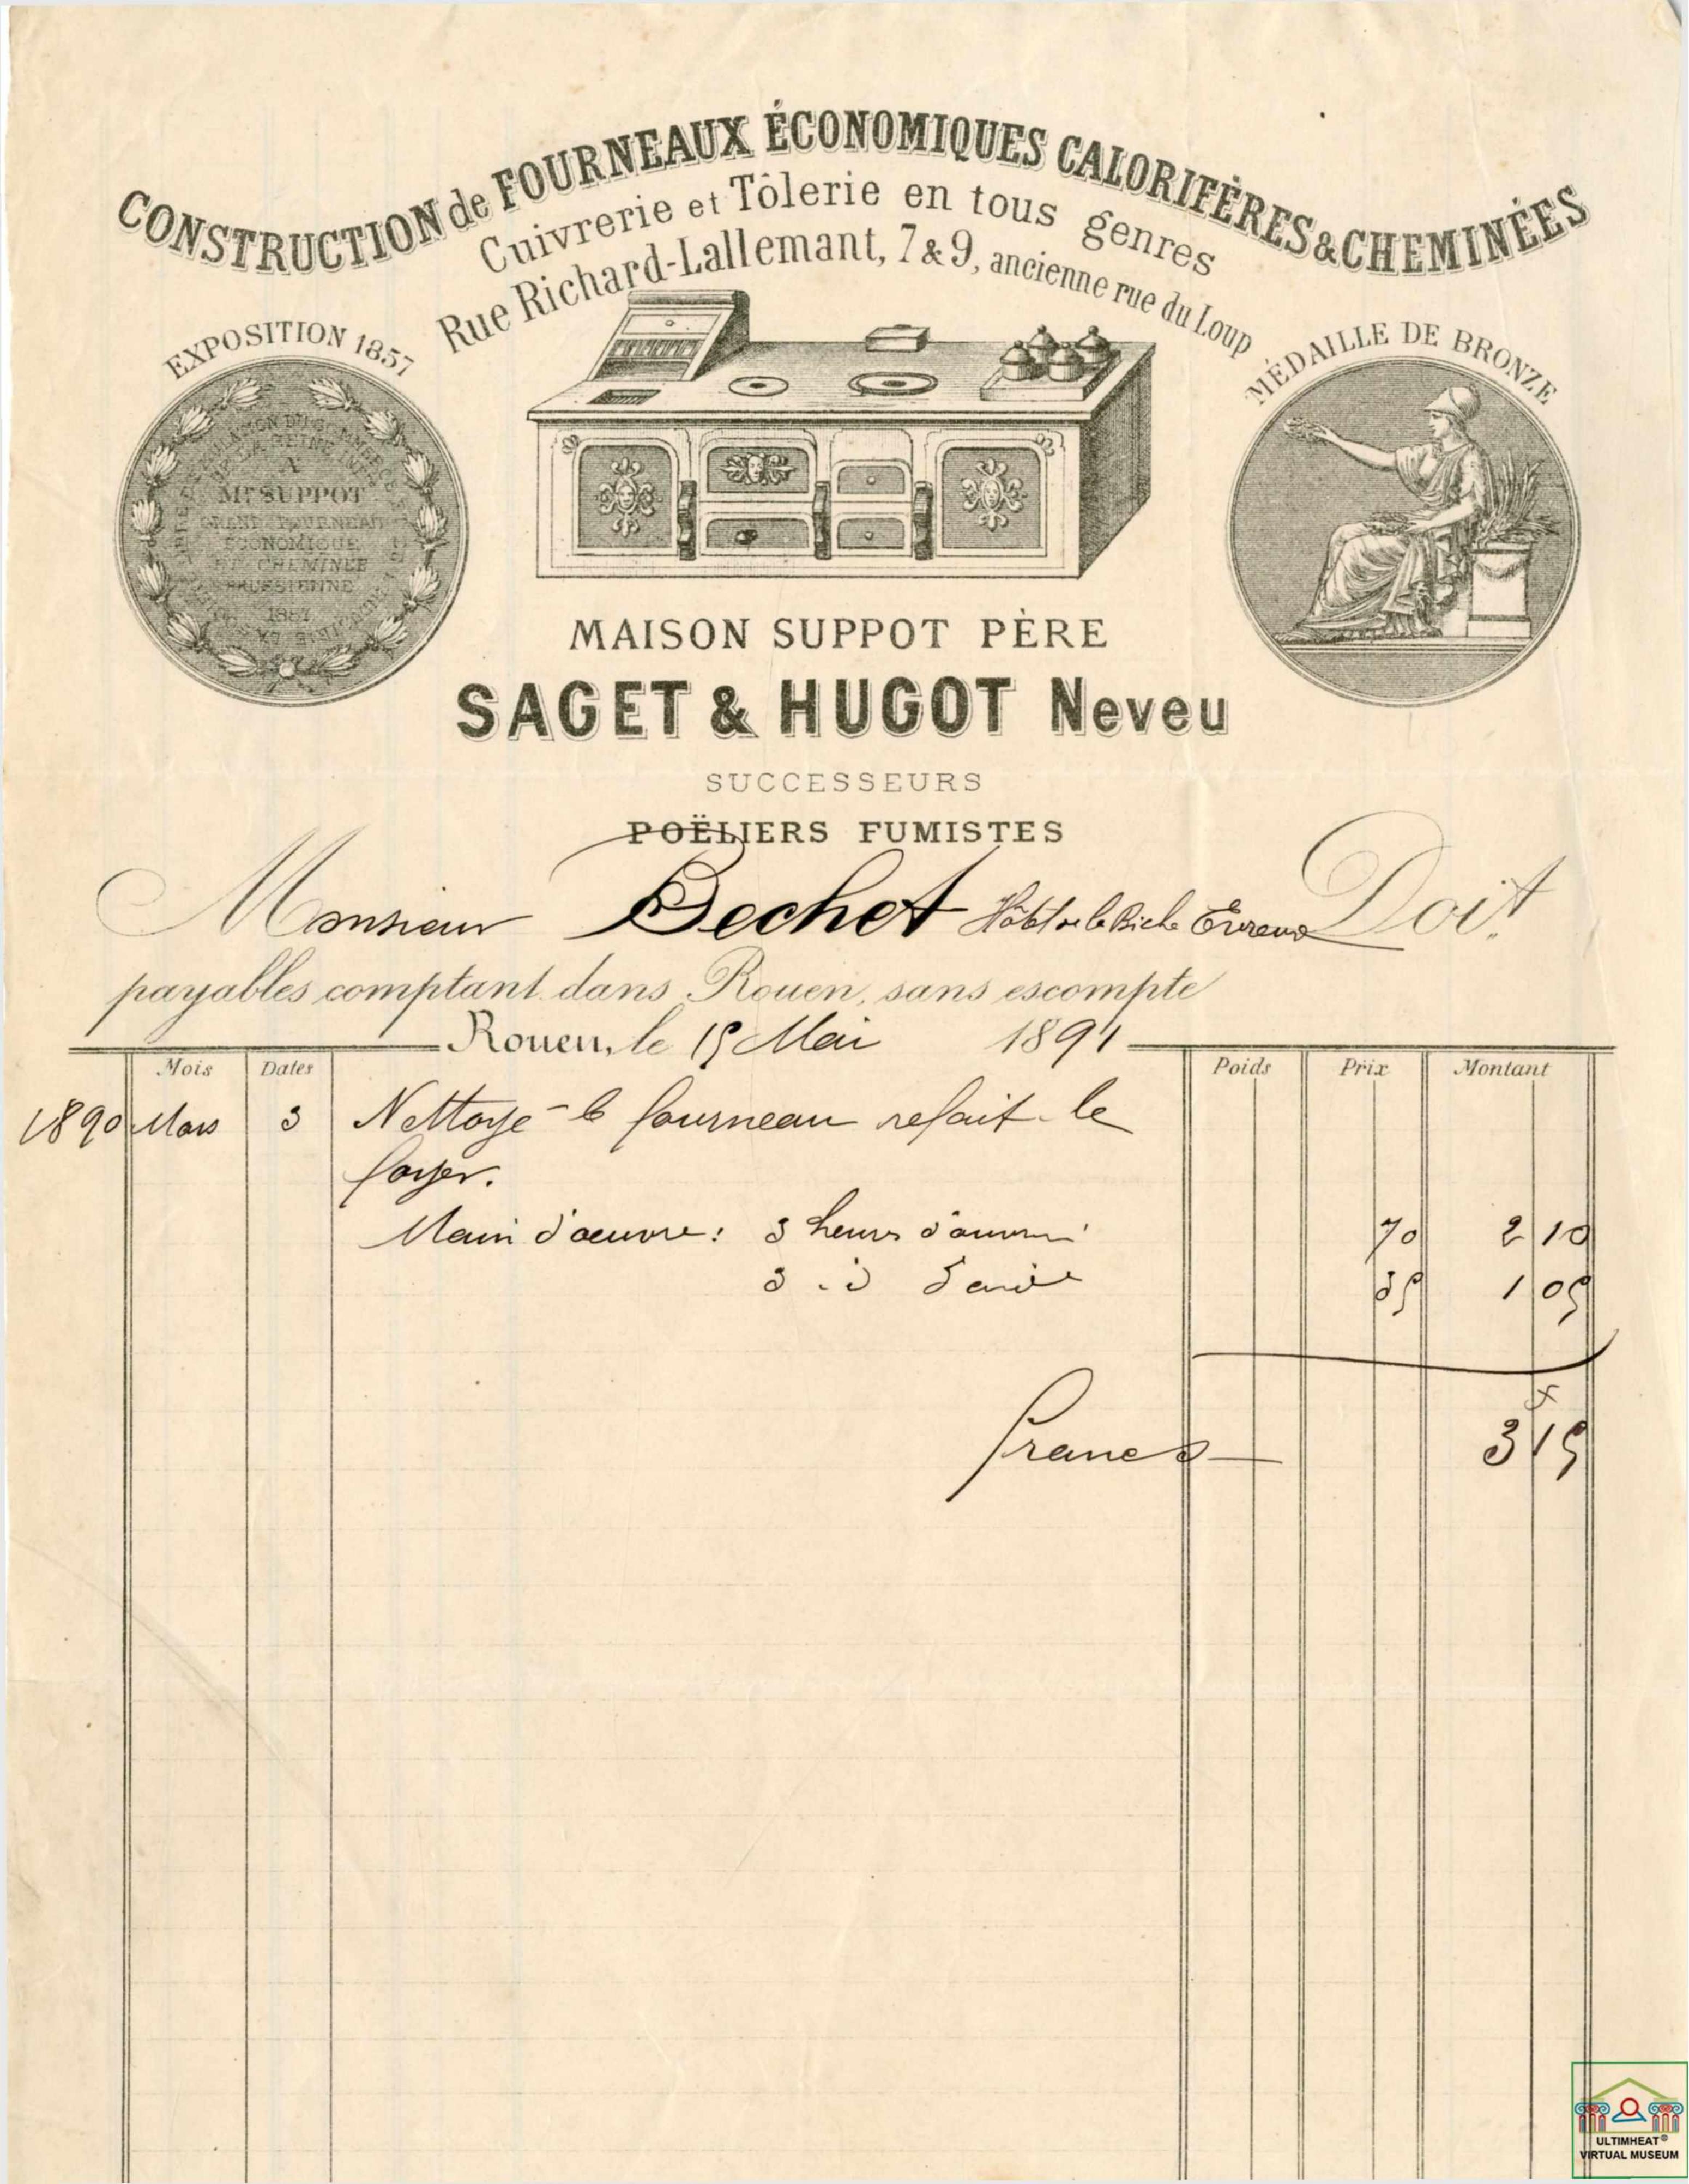 CONSTRUCTION de FOURNEAUX ÉCONOMIQUES CALORIFÈRES & CHEMINÉES
Cuivrerie et Tôlerie en tous genres
Rue Richard-Lallemant, 7 & 9, ancienne rue du Loup
EXPOSITION 1857
MÉDAILLE DE BRONZE
A
Mr SUPPOT
FOURNEAU
ÉCONOMIQUE
ET CHEMINÉE
PRUSSIENNE
MAISON SUPPOT PÈRE
SAGET & HUGOT Neveu
SUCCESSEURS
POËLIERS FUMISTES
Monsieur Bechet Hôtel de la Biche Evreux Doit
payables comptant dans Rouen, sans escompte
Rouen, le 15 Mai 1891
Mois Dates Poids Prix Montant
1890 Mars 3 Nettoyé le fourneau refait le
foyer.
Main d'œuvre: 3 heures d'ouvrier 70 2 10
3 . d d'aide 35 1 05
Francs 3 15
ULTIMHEAT®
VIRTUAL MUSEUM